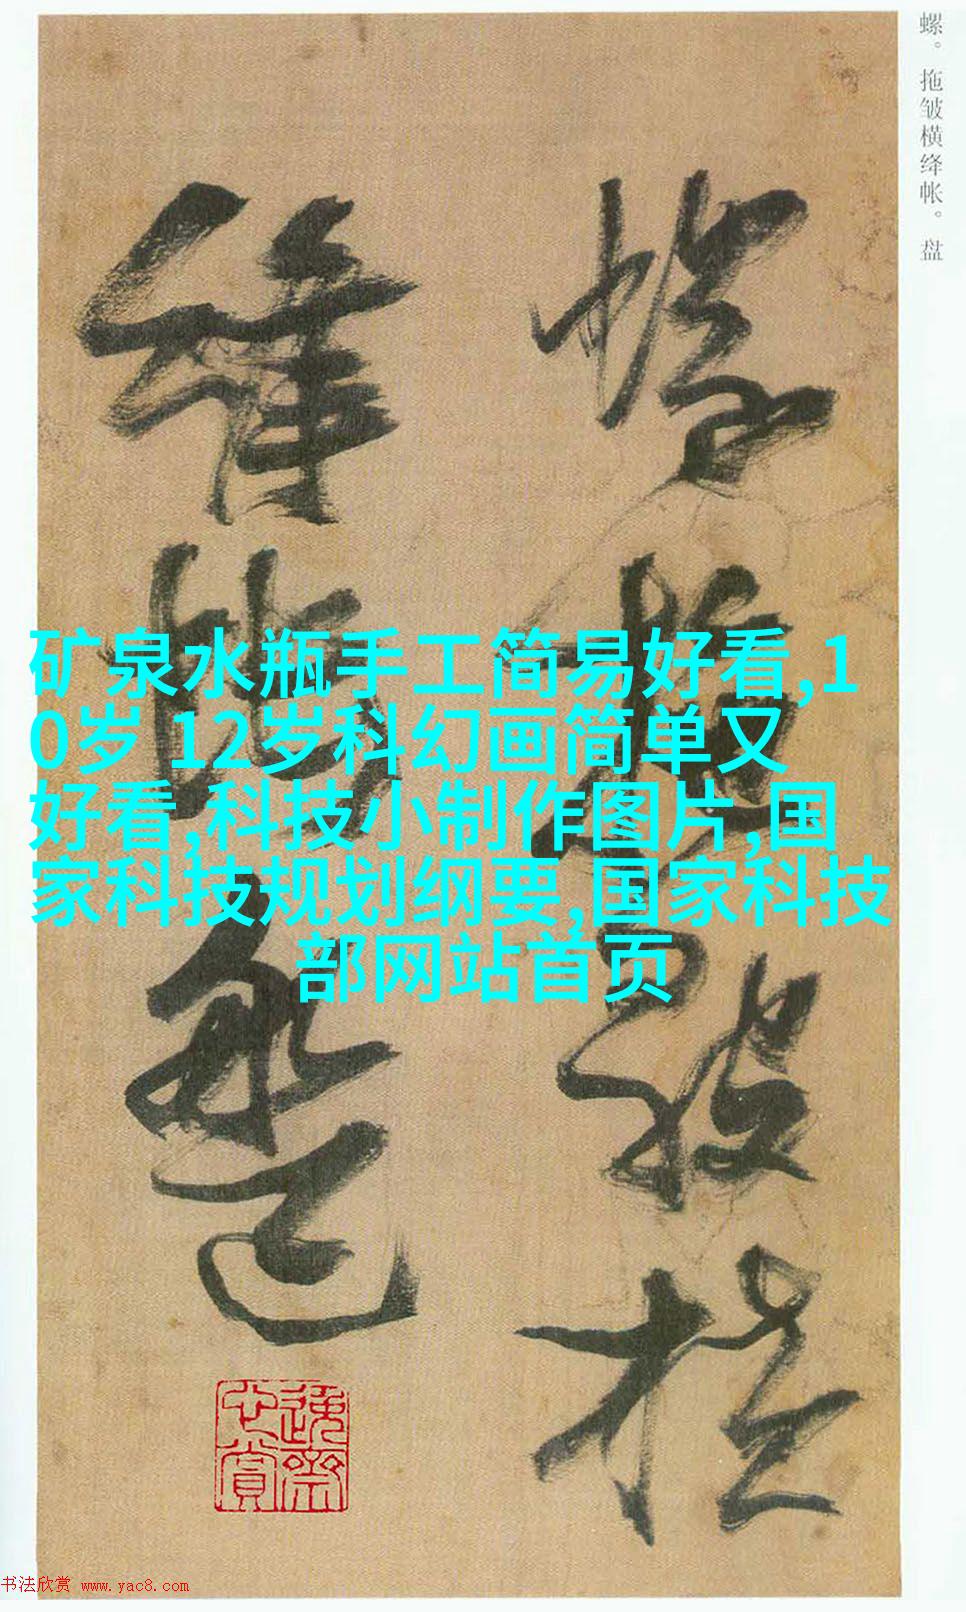 螺。拖皱横绛帐。盘
螺拖皱横
绛帐盘
矿泉水瓶手工简易好看,1
0岁 12岁科幻画简单又
好看,科技小制作图片,国
家科技规划纲要,国家科技
部网站首页
书法欣赏 www.yac8.com